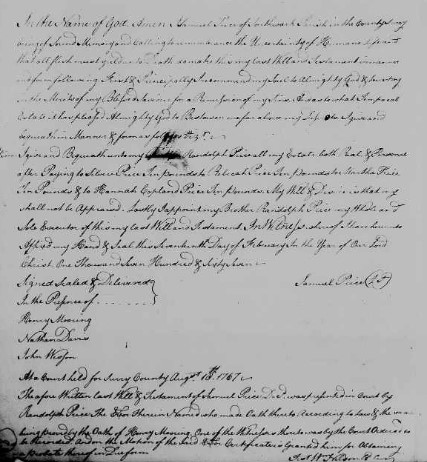 In the Name of God Amen I Samuel Price of Southwark Parish in the County of Surry
being of Sound Memory and Calling to remembrance the Uncertainty of Humane
that all flesh must yield to Death do make this my Last Will and Testament in manner
and form following First & Principally I recommend my Soul to Almighty God & hoping
in the Merits of my Blessed Saviour for a Remission of my Sins And as to what Temporal
Estate it hath pleased Almighty God to Bestow on me for above my I give and
in Manner & form as followeth
I give and Bequeath unto my Randolph Price all my Estate both Real & Personal
after Paying to Price Ten pounds to Price Ten pounds to Martha Price
Ten Pounds & to Hannah Copland Price Ten pounds. My Will & Desire is that my
shall not be Appraised. Lastly I appoint my Brother Randolph Price my Whole and
Sole Executor of this my last Will and Testament. In Witness whereof I have hereunto
Affixed my Hand & Seal this Seventeenth Day of February In the Year of our Lord
Christ One Thousand Seven Hundred & Sixty Seven
Signed Sealed & Delivered
Samuel Price
In the Presence of
Henry Mooring
Nathan Davis
John Wesson
At a Court held for Surry County Augst 18th 1767
The afore Written Last Will & Testament of Samuel Price was presented in Court by
Randolph Price the Exr. Therein Named who made Oath thereto According to Law & the same
being proved by the Oath of Henry Mooring One of the Witnesses thereto was by the Court Ordered
to be recorded And on the Motion of the Said Exr Certificate is Granted him for Obtaining
a Probate thereof in Due form